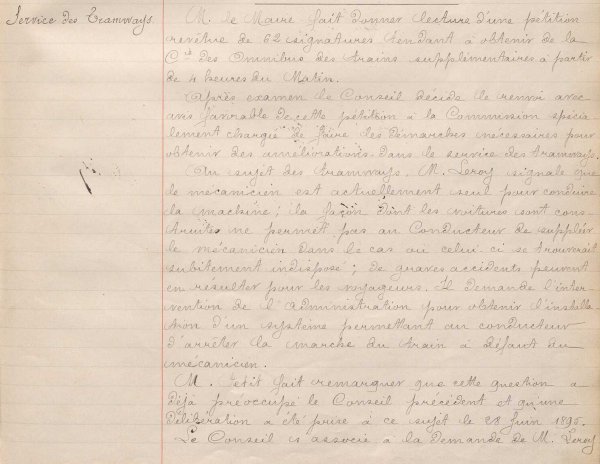 Service des Tramways.
M. le Maire fait donner lecture d'une pétition
revêtue de 62 signatures tendant à obtenir de la
Cie des Omnibus des trains supplémentaires à partir
de 4 heures du Matin.
Après examen le Conseil décide le renvoi avec
avis favorable de cette pétition à la Commission spécia-
lement chargée de faire les démarches nécessaires pour
obtenir des améliorations dans le service des tramways.
Au sujet des tramways, M. Leroy signale que
le mécanicien est actuellement seul pour conduire
la machine; la façon dont les voitures sont cons-
truites ne permet pas au Conducteur de suppléer
le mécanicien dans le cas où celui-ci se trouverait
subitement indisposé; de graves accidents peuvent
en résulter pour les voyageurs. Il demande l'inter-
vention de l'Administration pour obtenir l'installa-
tion d'un système permettant au conducteur
d'arrêter la marche du train à défaut du
mécanicien.
M. Petit fait remarquer que cette question a
déjà préoccupé le Conseil précédent et qu'une
délibération a été prise à ce sujet le 28 Juin 1895.
Le Conseil s'associe à la demande de M. Leroy